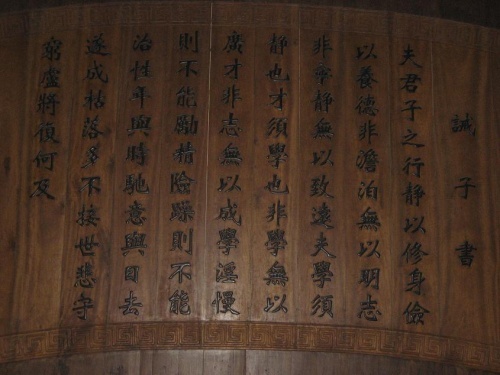 誡子書
夫君子之行静以修身儉
以養德非澹泊無以明志
非寧静無以致遠夫學須
静也才須學也非學無以
廣才非志無以成學淫慢
則不能勵精險躁則不能
治性年與時馳意與日去
遂成枯落多不接世悲守
窮廬將復何及